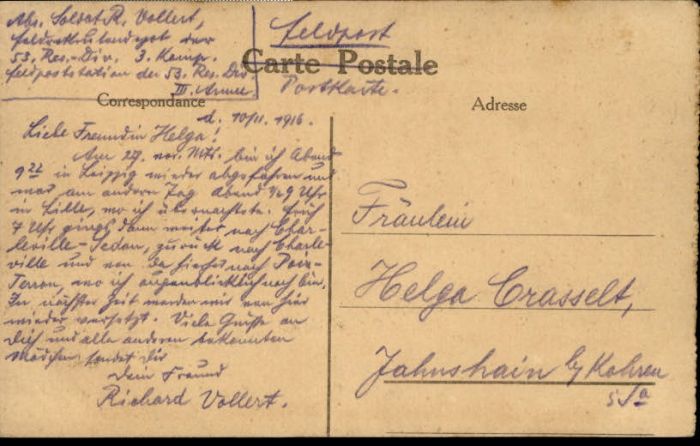 Abs. Soldat R. Vollert,
Feldrekrutendepot der
53. Res.-Div. 3. Komp.
Feldpoststation der 53. Res. Div
III. Armee
Feldpost
Carte Postale
Postkarte.
Correspondance
Adresse
d. 10/11. 1916.
Liebe Freundin Helga!
Am 27. vor. Mts. bin ich Abend
9 in Leipzig wieder abgefahren und
war am andern Tag Abend ½9 Uhr
in Lille, wo ich übernachtete. Früh
4 Uhr gings dann weiter nach Char-
leville-Sedan, zurück nach Charle-
ville und von da hierher nach Poix-
Terron, wo ich augenblicklich noch bin.
In nächster Zeit werden wir von hier
wieder versetzt. Viele Grüsse an
Dich und alle anderen bekannten
Mädchen sendet Dir
Dein Freund
Richard Vollert.
Fräulein
Helga Crasselt,
Jahnshain b/Kohren
i/Sa